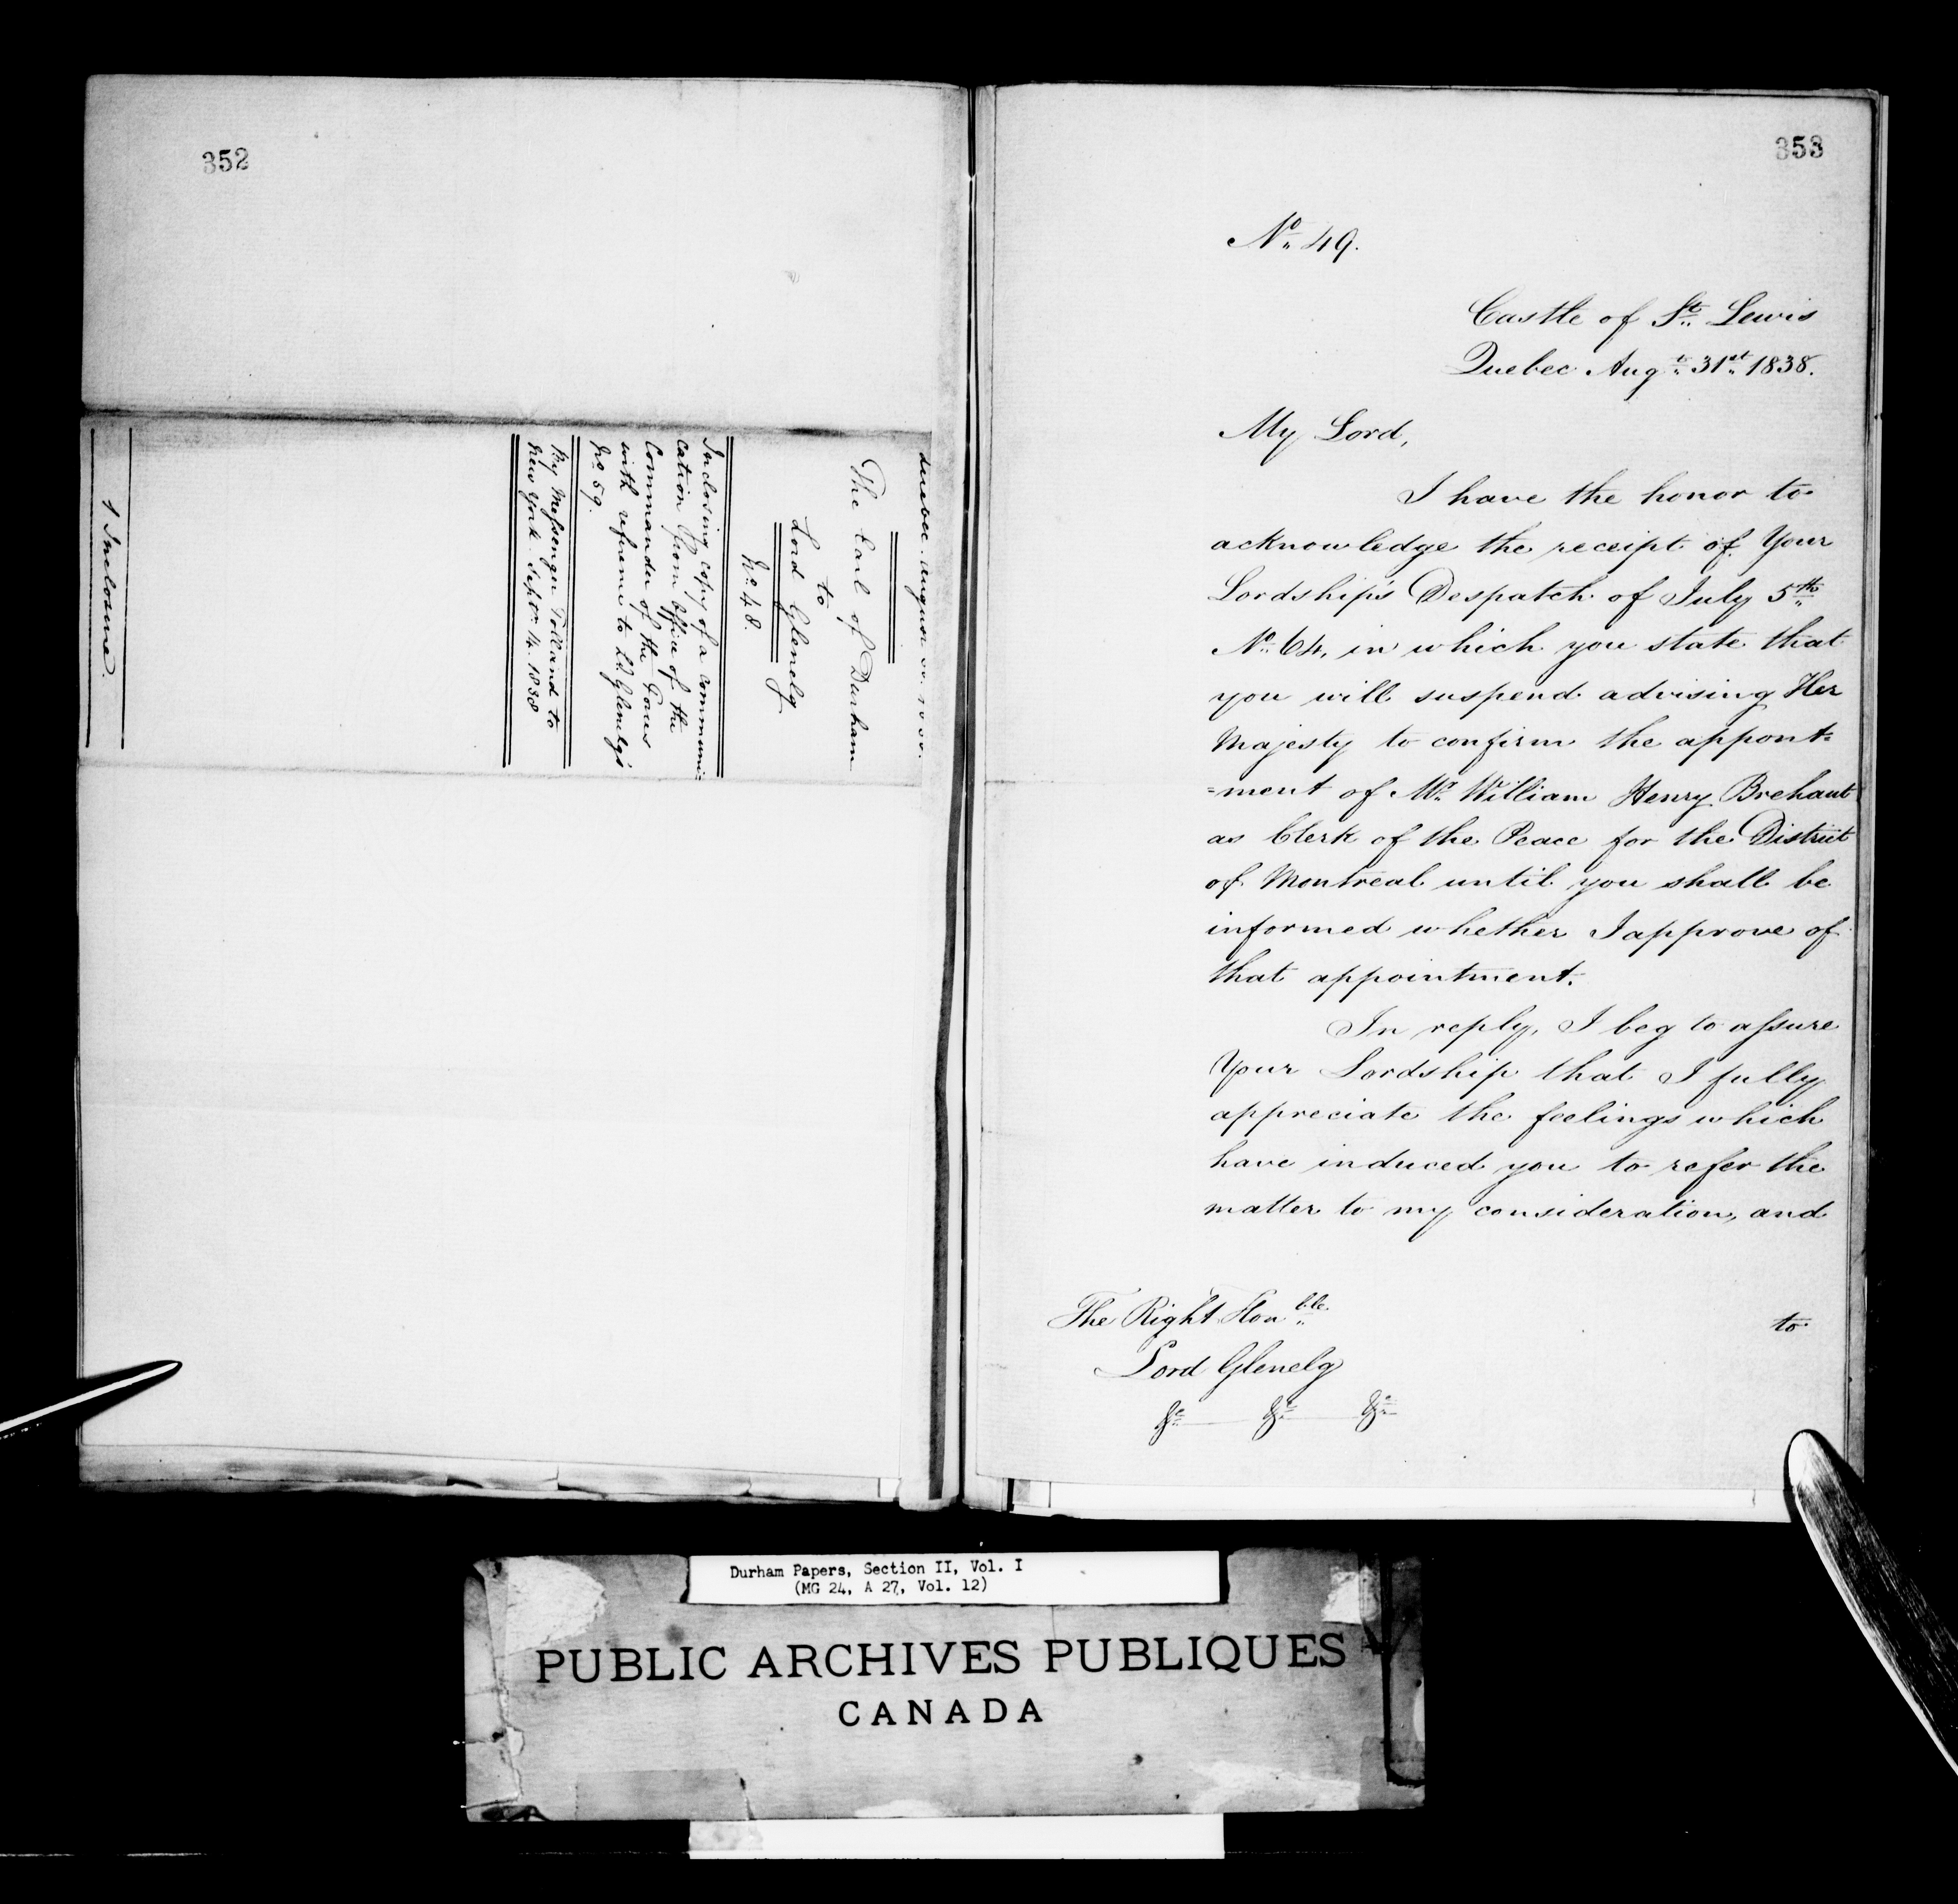 352
Quebec. August 30. 1838.
The Earl of Durham
to
Lord Glenelg
No. 48.
Inclosing copy of a communi=
cation from Office of the
Commander of the Forces
with reference to Ld Glenelg's
No. 59.
By Messenger Tolland to
New York. Septr. 14. 1838
1 Inclosure.
353
No. 49.
Castle of St. Lewis
Quebec Augt. 31st. 1838.
My Lord,
I have the honor to
acknowledge the receipt of Your
Lordship's Despatch of July 5th.
No. 64, in which you state that
you will suspend advising Her
Majesty to confirm the appont=
=ment of Mr. William Henry Brehaut
as Clerk of the Peace for the District
of Montreal until you shall be
informed whether I approve of
that appointment.
In reply, I beg to assure
Your Lordship that I fully
appreciate the feelings which
have induced you to refer the
matter to my consideration, and
to
The Right Honble.
Lord Glenelg
&c. &c. &c.
Durham Papers, Section II, Vol. I
(MG 24, A 27, Vol. 12)
PUBLIC ARCHIVES PUBLIQUES
CANADA